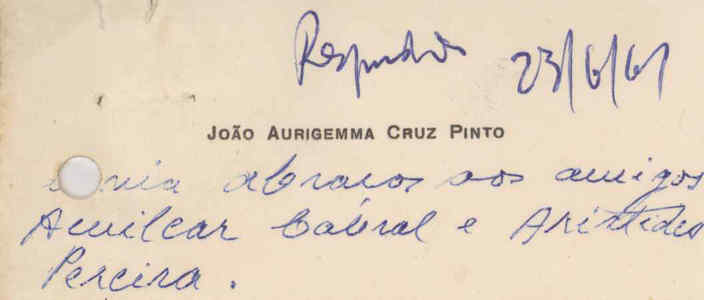 Respondido 23/6/61
JOÃO AURIGEMMA CRUZ PINTO
envia abraços aos amigos
Amilcar Cabral e Aristides
Pereira.